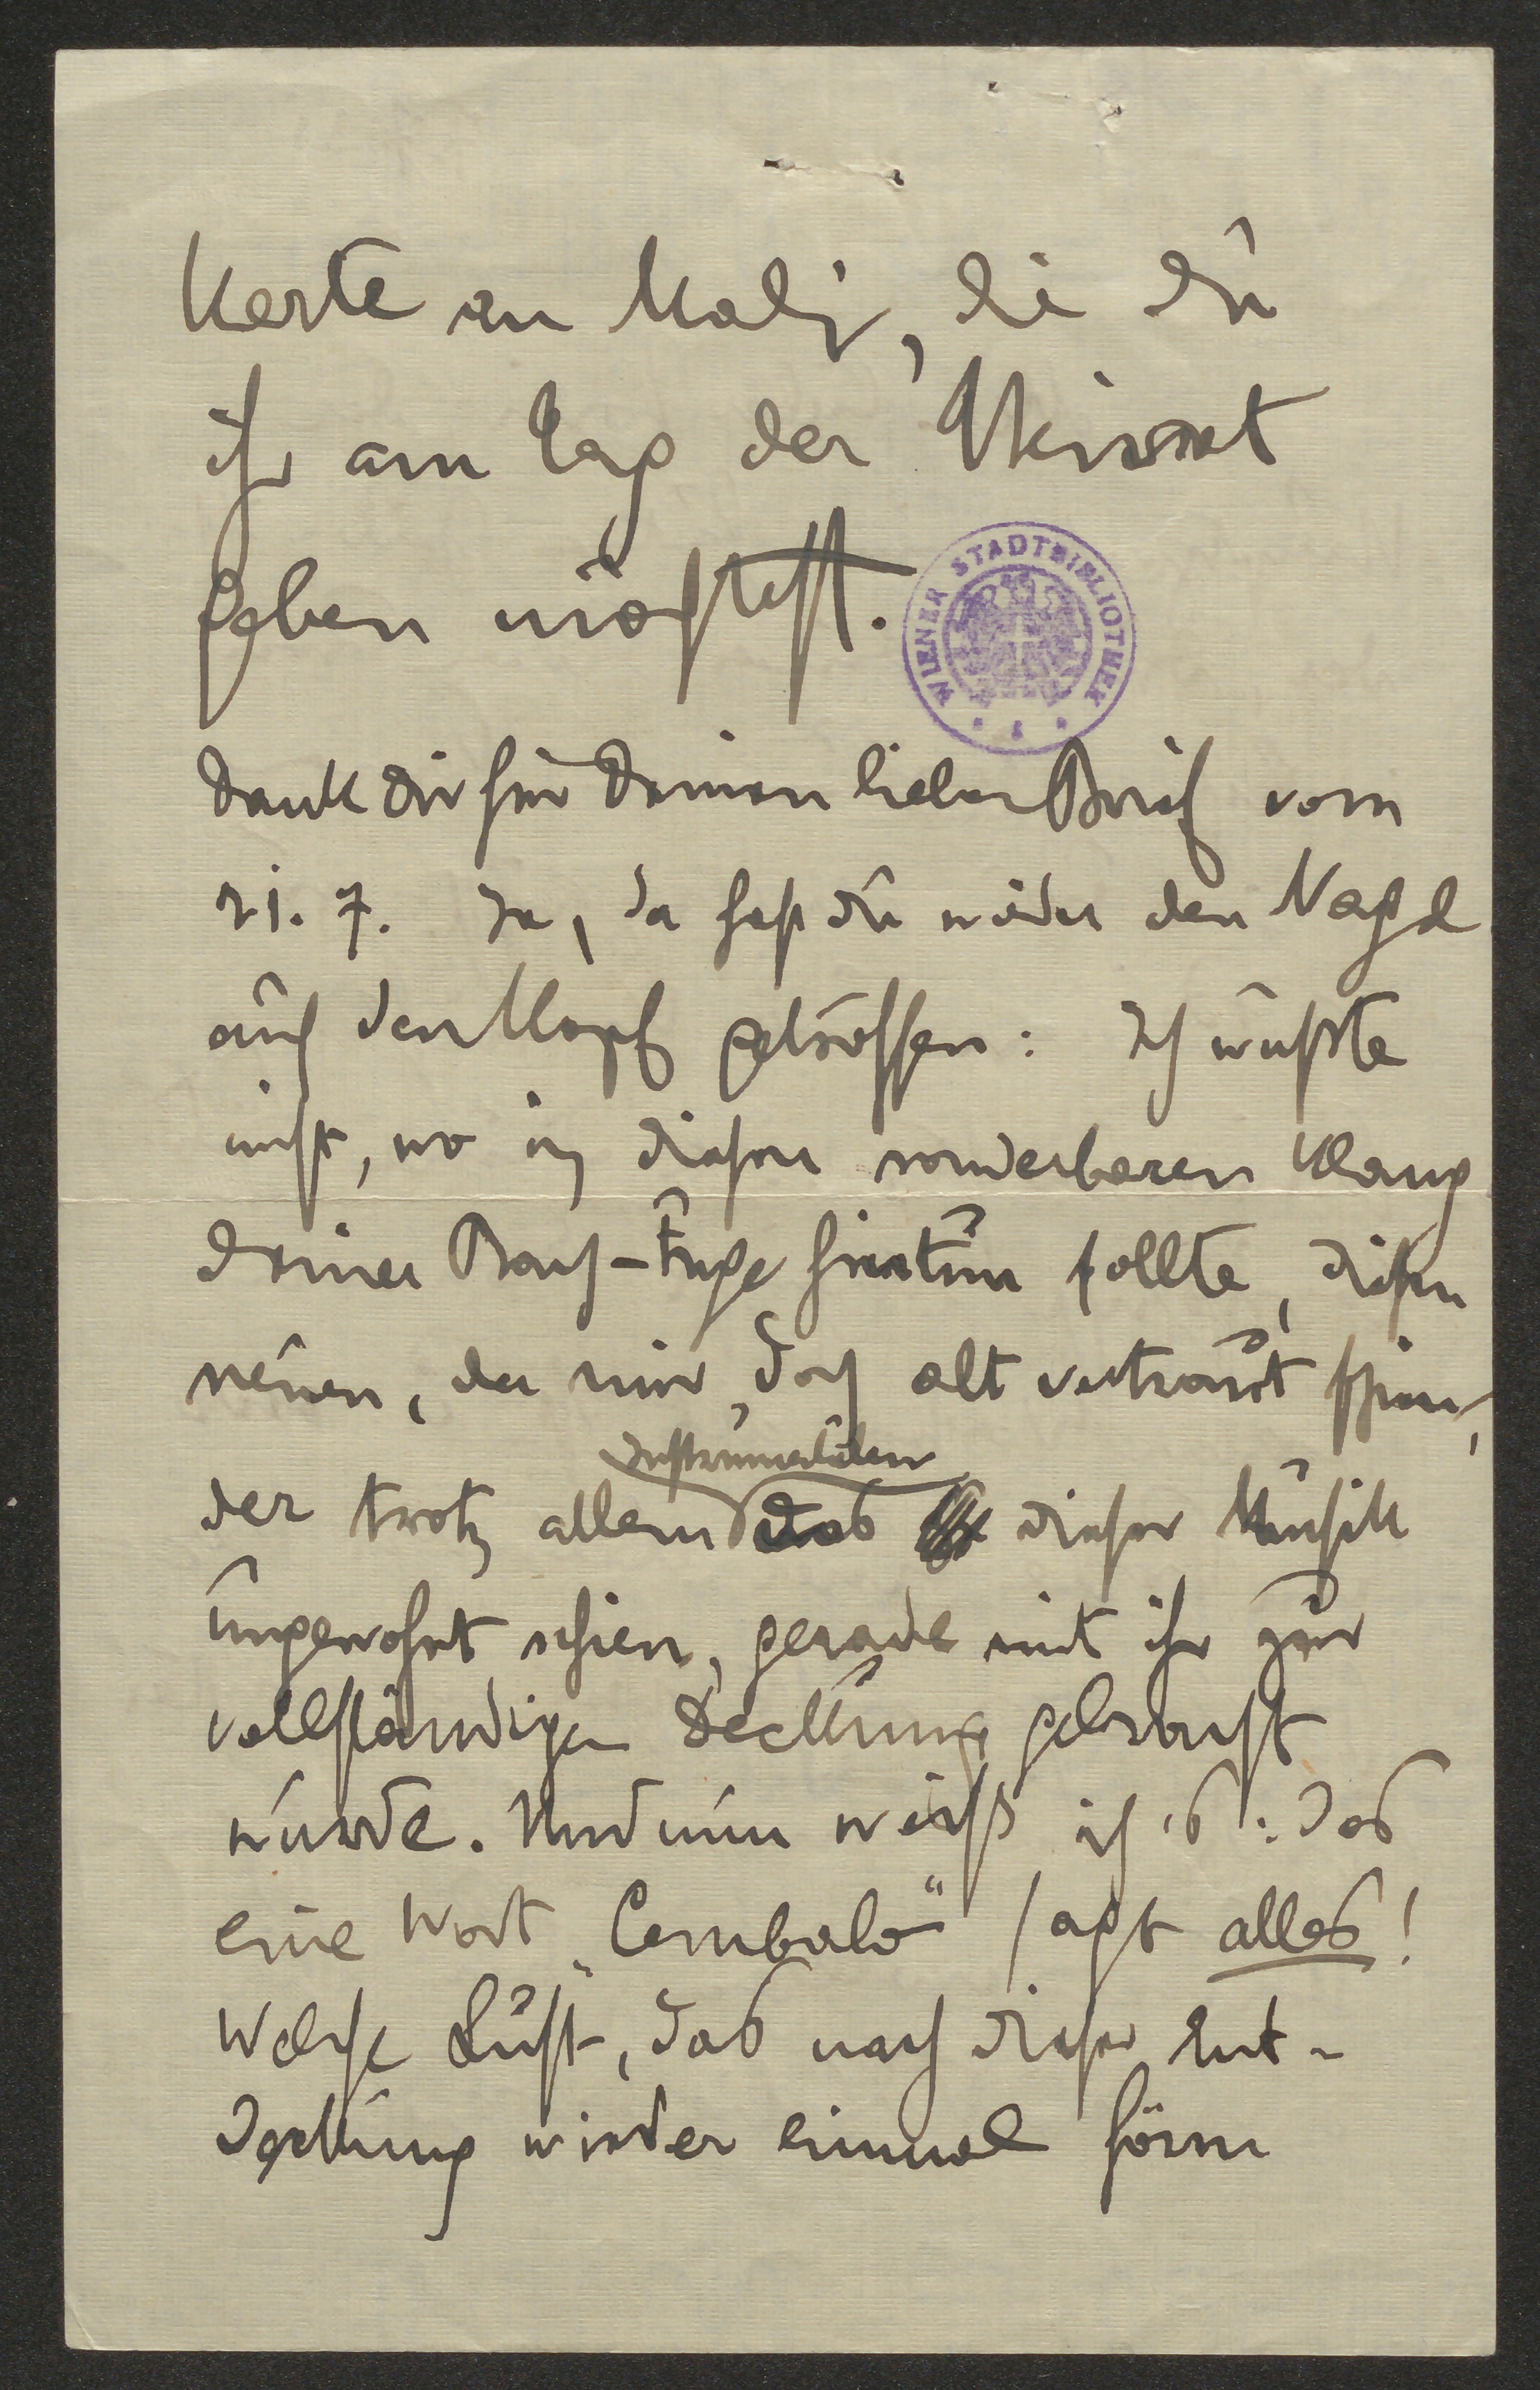 Karte an Maly, die Du
ihr am Tag der Ankunft
geben möchtest.
WIENER STADTBIBLIOTHEK
Dank Dir für Deinen lieben Brief vom
21. 7. Ja, da hast Du wieder den Nagel
auf den Kopf getroffen: Ich wußte
nicht, wo ich diesen sonderbaren Klang
Deiner Bach-Fuge hintun sollte, diesen
neuen, der mir doch alt vertraut schien,
Instrumentalen
der trotz allem das dieser Musik
ungewohnt schien, gerade mit ihr zur
vollständigen Deckung gebracht
wurde. Und nun weiß ich's: Das
eine Wort „Cembalo" sagt alles!
Welche Lust, das nach dieser Ent-
deckung wieder einmal hören